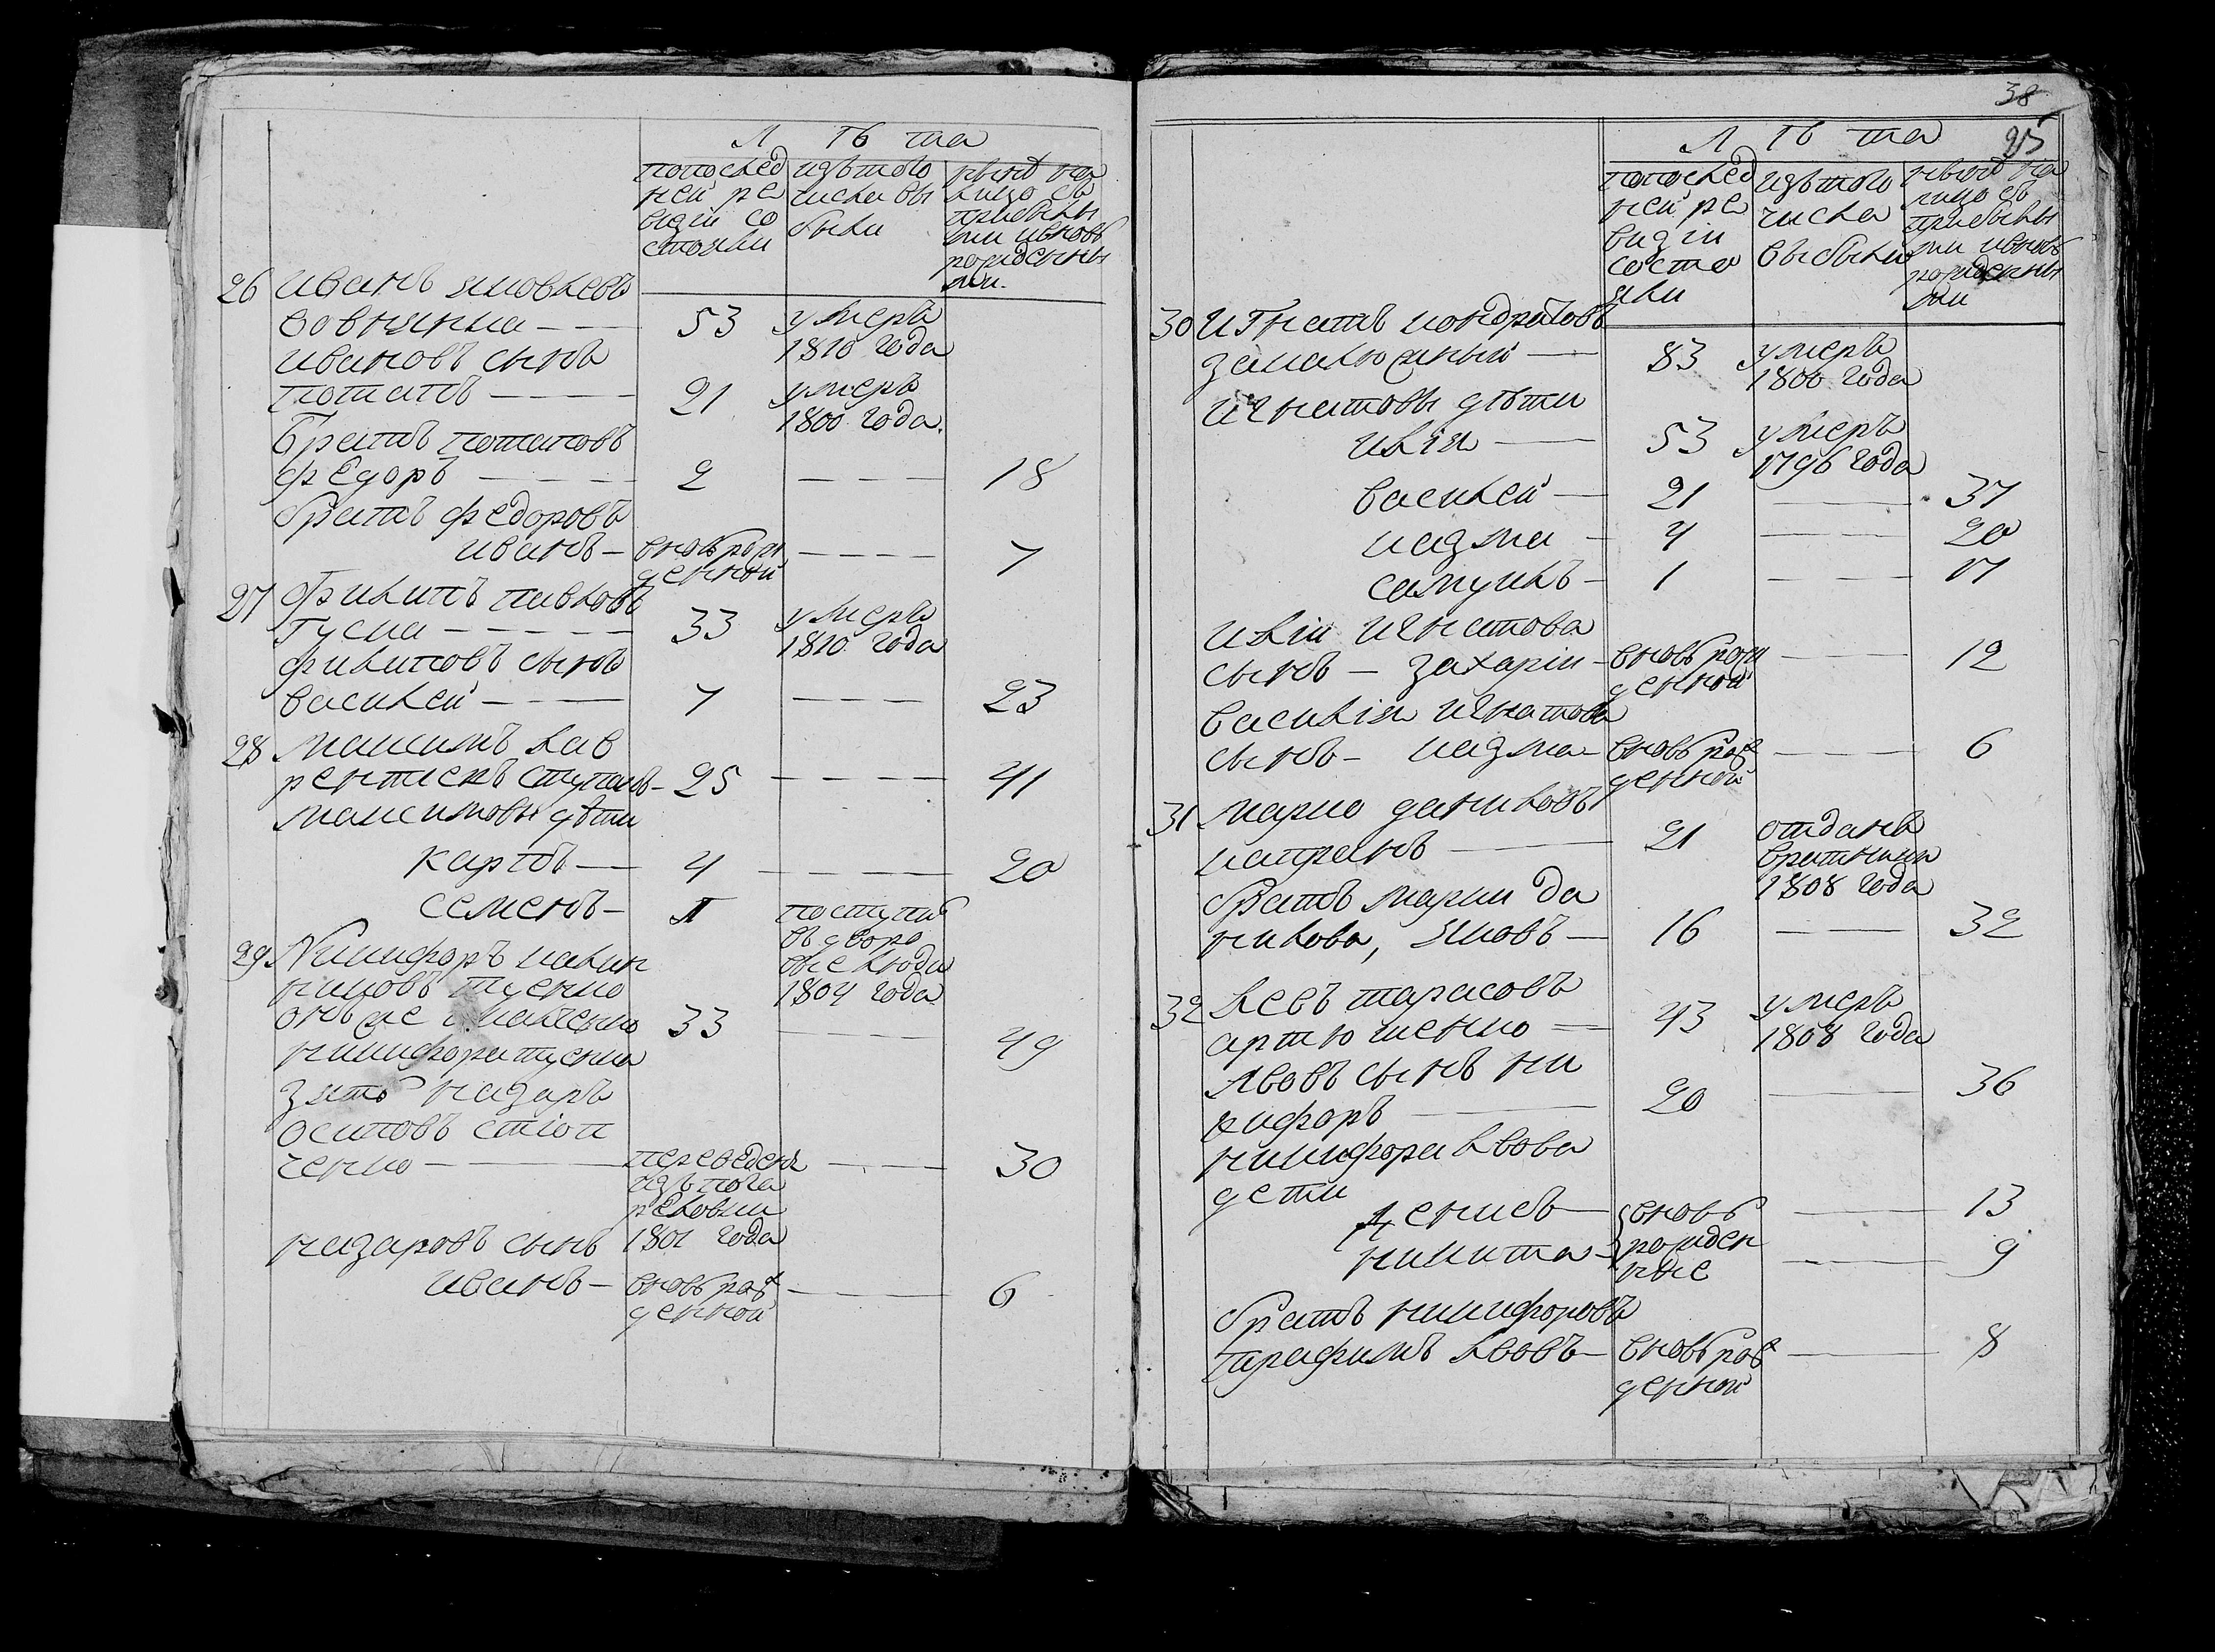 Л ѣ та
попослед ней ре визіи со стояли
изътого числа вы были
ныне на лицо съ прибылы ми ивновь рожденны ми.
26 Иванъ яковлевъ
вовнянка — 53 умеръ 1810 года
ивановъ сынъ
потапъ — 21 умеръ 1800 года.
Братъ потаповъ
федоръ — 2 — 18
братъ федоровъ
иванъ — вновьрож денной — 7
27 Филипъ павловъ
Гуска — 33 умеръ 1810 года
филиповъ сынъ
василей — 7 — 23
28 Максимъ лав
рентиевъ — 25 — 41
максимовы дѣти
Карпъ — 4 — 20
семенъ — поступи въ дворо вые люди 1804 года
29 Никифоръ
33 — 49
никифора
зять назаръ
осиповъ
ченко — переведенъ изъ 1801 года — 30
назаровъ сынъ
иванъ — вновьрож денной — 6
38
25
Л ѣ та
попослед ней ре визіи состо яли
изътого числа выбыли
ныне на лицо съ прибылы ми ивновь рожденны ми
30 Игнатъ кондратовъ
83 умеръ 1800 года
игнатовы дѣти
илія — 53 умеръ 1796 года
василей — 21 — 37
кузма — 4 — 20
самуилъ — 1 — 17
иліи игнатова
сынъ — захарія — вновьрож денной — 12
василія игнатова
сынъ — кузма — вновьрож денной — 6
31 марко даниловъ
капранъ — 21 отданъ вратники 1808 года
братъ марки да
нилова, яковъ — 16 — 32
32 левъ тарасовъ
артюшенко — 43 умеръ 1808 года
львовъ сынъ ни
кифоръ — 20 — 36
никифора львова
дети
денисъ — вновь рожден ные — 13
никита — 9
братъ никифоровъ
трафимъ львовъ — вновьрож денной — 8